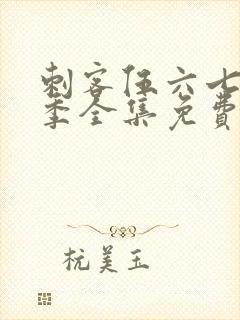 刺客伍六七
季全集免费
杭美玉